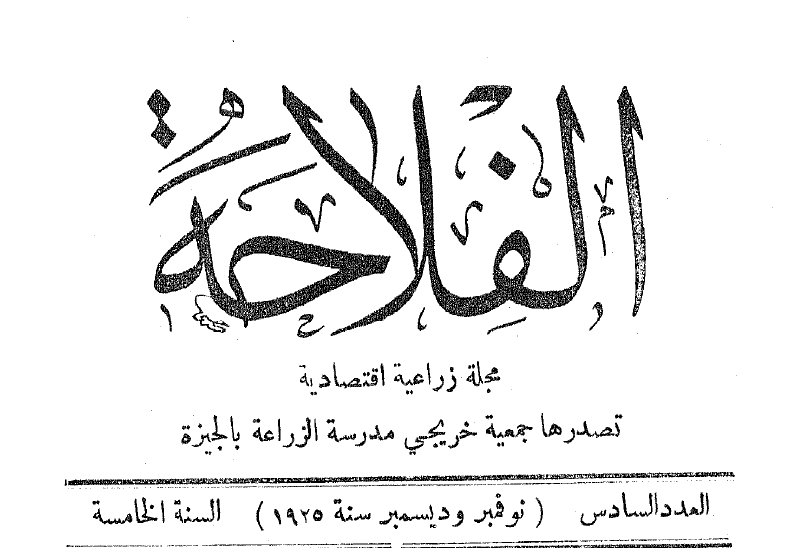 الفلاحة
مجلة زراعية اقتصادية
تصدرها جمعية خريجي مدرسة الزراعة بالجيزة
العدد السادس ( نوفمبر وديسمبر سنة ١٩٢٥ ) السنة الخامسة